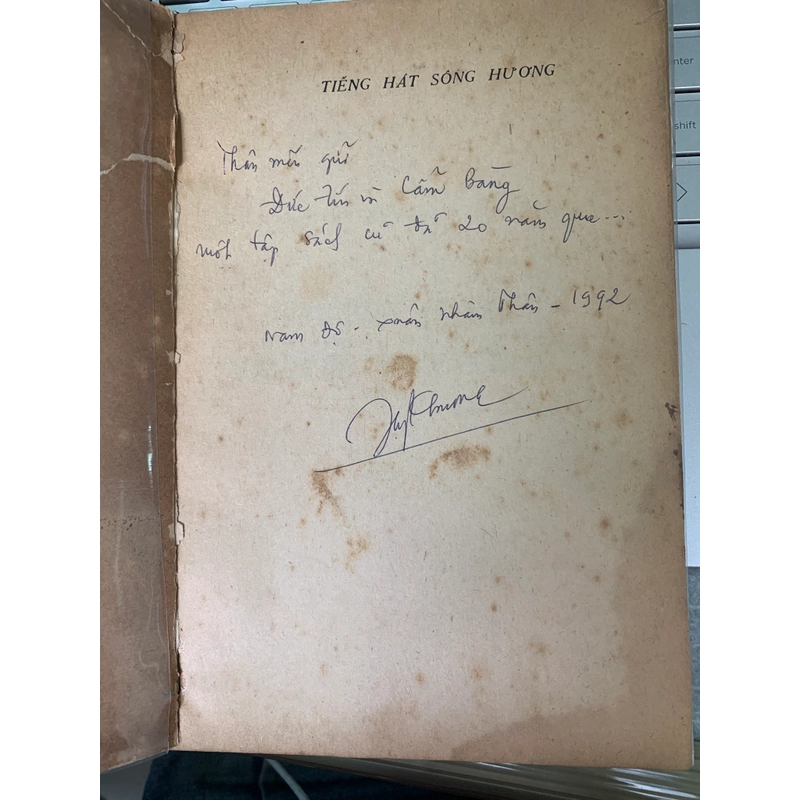 TIẾNG HÁT SÔNG HƯƠNG
Thân mến gửi
Đức Tín và Cẩm Bàng
một tập sách cũ đã 20 năm qua...
Nam Độ - xuân Nhâm Thân - 1992
enter
shift